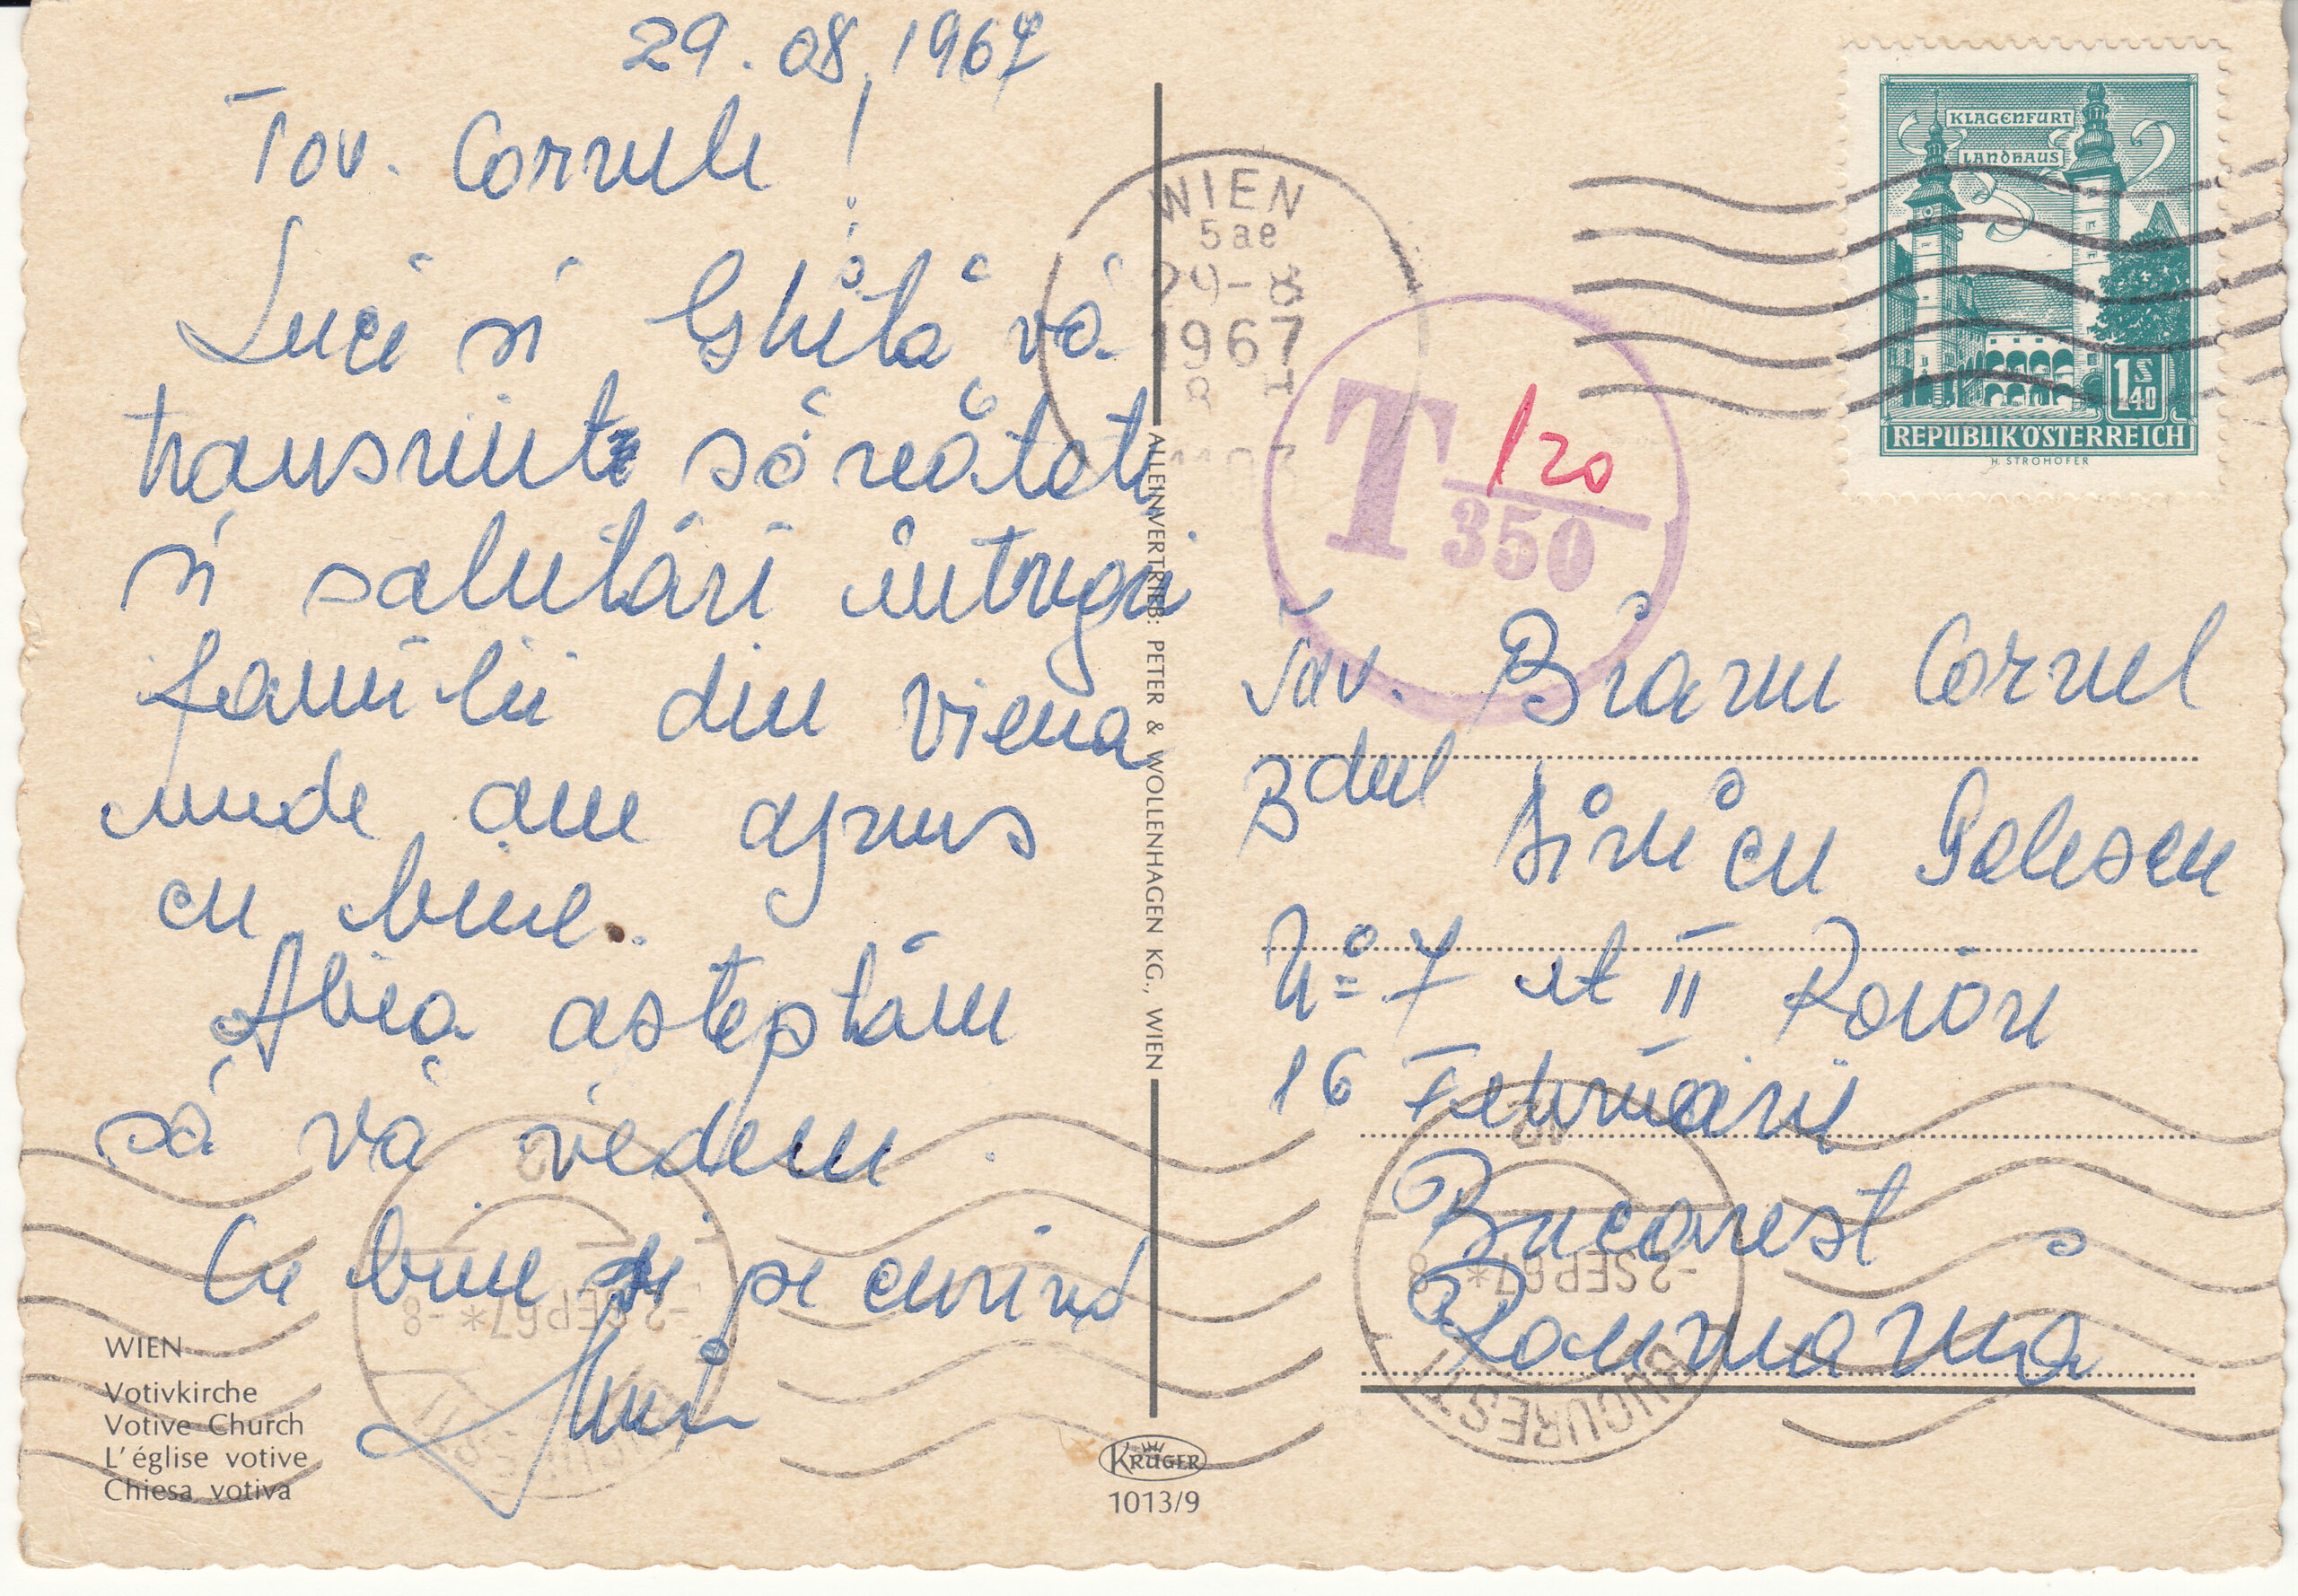 29.08.1967
Tov. Cornele!
Luci si Ghită vă
transmit sănătate
si salutări întregii
familii din Viena
unde am ajuns
cu bine.
Abia asteptăm
să vă vedem
Cu bine si pe curind
WIEN
Votivkirche
Votive Church
L'église votive
Chiesa votiva
ALLEINVERTRIEB: PETER & WOLLENHAGEN KG., WIEN
KRÜGER
1013/9
WIEN
5ae
29-8
1967
T 120
350
KLAGENFURT
LANDHAUS
1S
40
REPUBLIK ÖSTERREICH
H. STROHOFER
Tov. Cornel
Bdul Dinicu Golescu
No 7 et II Raion
16 Februarie
Bucarest
Roumania
-2SEP67*-8
-2SEP67*-8
BUCUREȘTI